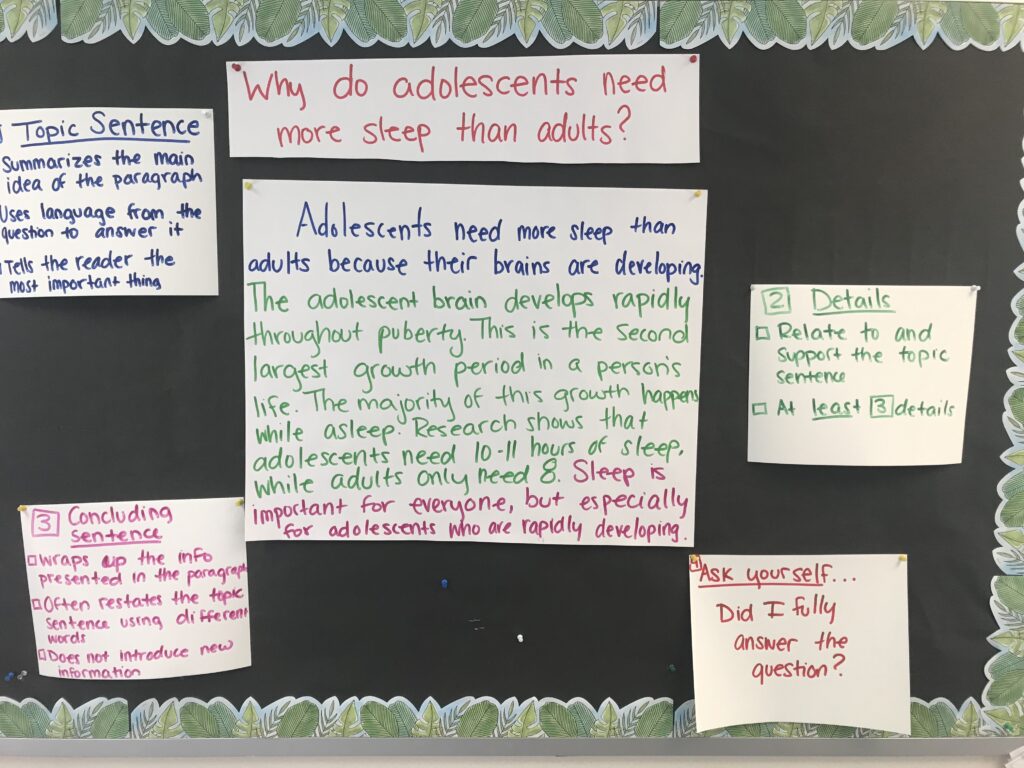 Why do adolescents need
more sleep than adults?
Topic Sentence
Summarizes the main
idea of the paragraph
Uses language from the
question to answer it
Tells the reader the
most important thing
Adolescents need more sleep than
adults because their brains are developing.
The adolescent brain develops rapidly
throughout puberty. This is the second
largest growth period in a person's
life. The majority of this growth happens
while asleep. Research shows that
adolescents need 10-11 hours of sleep,
while adults only need 8. Sleep is
important for everyone, but especially
for adolescents who are rapidly developing.
2 Details
Relate to and
support the topic
sentence
At least 3 details
3 Concluding
Sentence
Wraps up the info
presented in the paragraph
Often restates the topic
sentence using different
words
Does not introduce new
information
4 Ask yourself...
Did I fully
answer the
question?